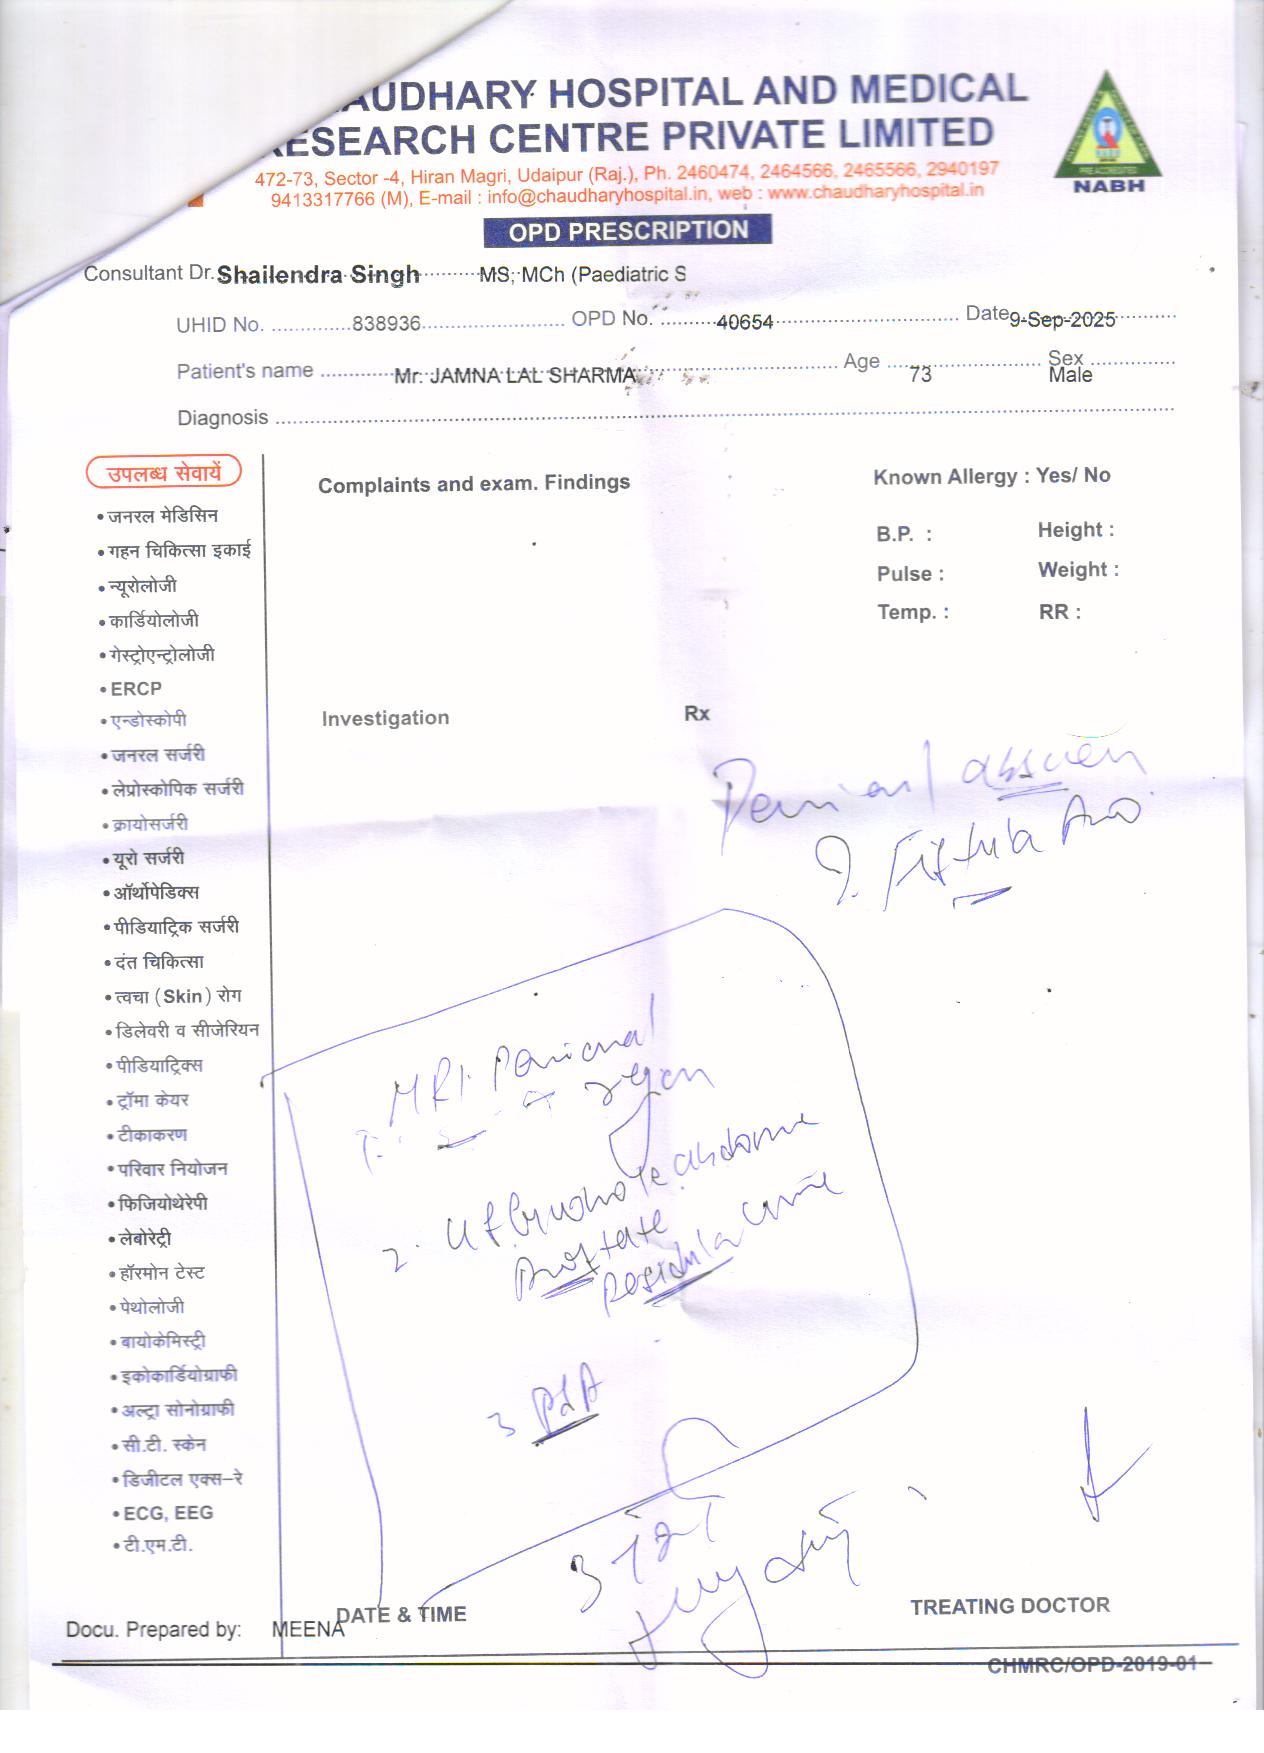 AUDHARY HOSPITAL AND MEDICAL
RESEARCH CENTRE PRIVATE LIMITED
472-73, Sector -4, Hiran Magri, Udaipur (Raj.), Ph. 2460474, 2464566, 2465566, 2940197
9413317766 (M), E-mail : info@chaudharyhospital.in, web : www.chaudharyhospital.in
NABH
OPD PRESCRIPTION
Consultant Dr. Shailendra Singh MS, MCh (Paediatric S
UHID No. 838936 OPD No. 40654 Date 9-Sep-2025
Patient's name Mr. JAMNA LAL SHARMA Age 73 Sex Male
Diagnosis
उपलब्ध सेवायें
• जनरल मेडिसिन
• गहन चिकित्सा इकाई
• न्यूरोलोजी
• कार्डियोलोजी
• गेस्ट्रोएन्ट्रोलोजी
• ERCP
• एन्डोस्कोपी
• जनरल सर्जरी
• लेप्रोस्कोपिक सर्जरी
• क्रायोसर्जरी
• यूरो सर्जरी
• ऑर्थोपेडिक्स
• पीडियाट्रिक सर्जरी
• दंत चिकित्सा
• त्वचा (Skin) रोग
• डिलेवरी व सीजेरियन
• पीडियाट्रिक्स
• ट्रॉमा केयर
• टीकाकरण
• परिवार नियोजन
• फिजियोथेरेपी
• लेबोरेट्री
• हॉरमोन टेस्ट
• पेथोलोजी
• बायोकेमिस्ट्री
• इकोकार्डियोग्राफी
• अल्ट्रा सोनोग्राफी
• सी.टी. स्केन
• डिजीटल एक्स-रे
• ECG, EEG
• टी.एम.टी.
Complaints and exam. Findings
Known Allergy : Yes/ No
B.P. : Height :
Pulse : Weight :
Temp. : RR :
Investigation
Rx
Perianal
?. Fistula Ano
MRI Perianal
region
2. whole abdome
Prostate
Residual urine
3
DATE & TIME
TREATING DOCTOR
Docu. Prepared by: MEENA
CHMRC/OPD-2019-01